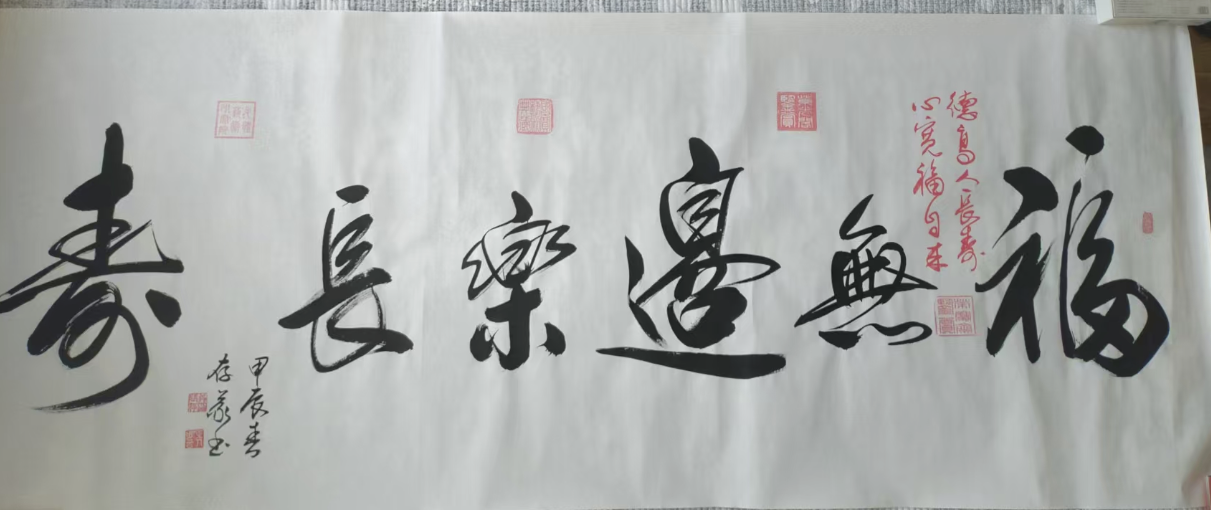 福無邊樂長壽
德高人長壽
心寬福自來
甲辰春
存義书